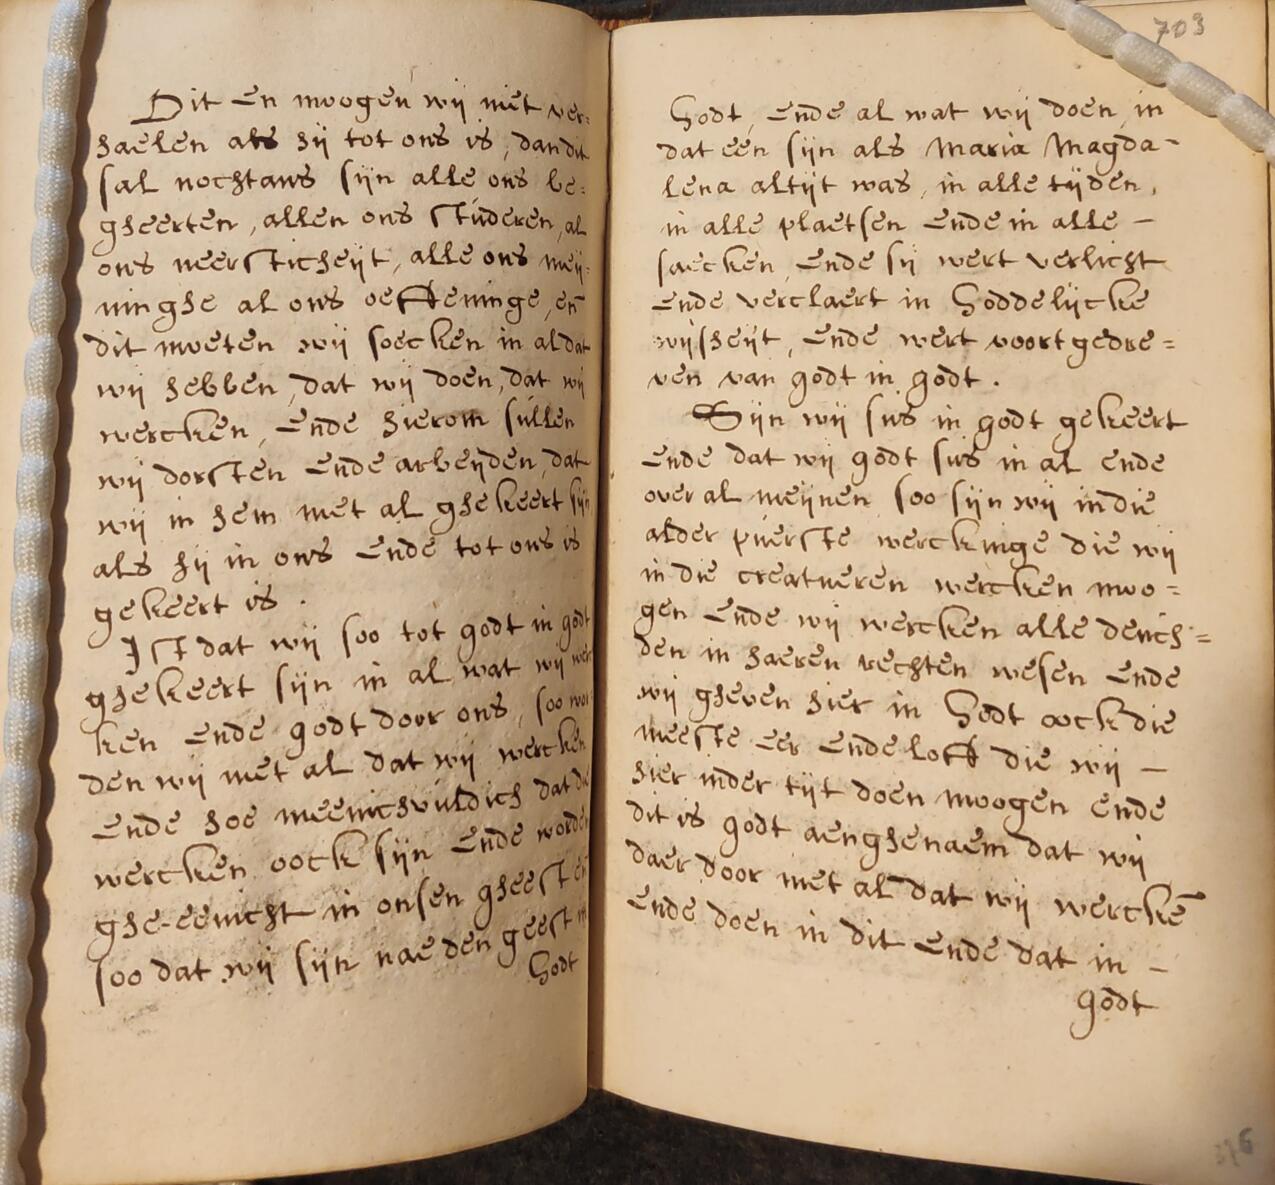 Dit en moogen wij niet ver=
haelen als hij tot ons is, dan dit
sal nochtans sijn alle ons be=
gheerten, allen ons studeren, al
ons neersticheijt, alle ons meij=
ninghe al ons oeffeninge, en̄
dit moeten wij soecken in al dat
wij hebben, dat wij doen, dat wij
wercken, ende hierom sullen
wij dorsten ende arbeijden, dat
wij in hem met al ghekeert sijn
als hij in ons ende tot ons is
gekeert is.
Ist dat wij soo tot godt in godt
ghekeert sijn in al wat wij wer
ken ende godt door ons, soo wor=
den wij met al dat wij wercken
ende hoe meenichvuldich dat die
wercken oock sijn ende worden
ghe-eenicht in onsen gheest en̄
soo dat wij sijn nae den geest in
Godt
703
Godt, ende al wat wij doen, in
dat een sijn als Maria Magda-
lena altijt was, in alle tijden,
in alle plaetsen ende in alle -
saecken, ende sij wert verlicht
ende verclaert in Goddelijcke
wijsheijt, ende wert voortgedre=
ven van godt in godt.
Sijn wij sus in godt gekeert
ende dat wij godt sus in al ende
over al meijnen soo sijn wij in die
alder puerste werckinge die wij
in die creatueren wercken moo=
gen ende wij wercken alle deuch=
den in haeren rechten wesen ende
wij gheven hier in Godt oock die
meeste eer ende loff die wij -
hier inder tijt doen moogen ende
dit is godt aenghenaem dat wij
daer door met al dat wij wercke̅
ende doen in dit ende dat in -
godt